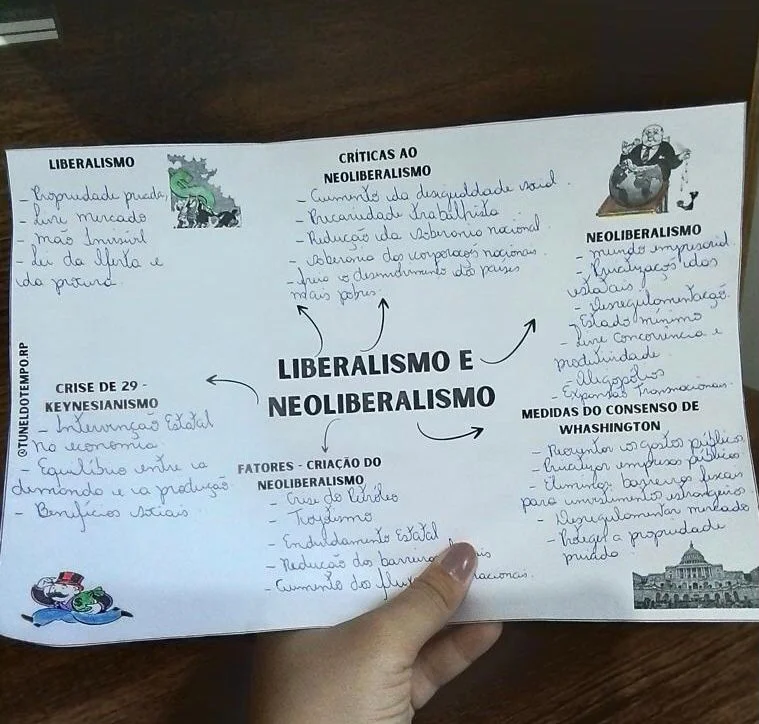 LIBERALISMO
- Propriedade privada,
- Livre mercado
- mão Invisível
- Lei da Oferta e
da procura.
CRÍTICAS AO
NEOLIBERALISMO
- Aumento da desigualdade social.
- Precariedade trabalhista
- Redução da soberania nacional
- soberania das corporações nacionais.
- freio o desenvolvimento dos países
mais pobres.
NEOLIBERALISMO
- mundo empresarial.
- Privatização das
estatais
- Desregulamentação.
- Estado mínimo
- Livre concorrência e
produtividade.
- Oligopólios
- Expansão Transnacionais.
LIBERALISMO E
NEOLIBERALISMO
@TUNELDOTEMPO.RP
CRISE DE 29 -
KEYNESIANISMO
- Intervenção Estatal
na economia.
- Equilíbrio entre a
demanda e a produção.
- Benefícios sociais
FATORES - CRIAÇÃO DO
NEOLIBERALISMO
- Crise do Petróleo
- Toyotismo
- Endividamento Estatal
- Redução das barreiras
- Aumento dos
MEDIDAS DO CONSENSO DE
WHASHINGTON
- Reorientar os gastos públicos
- Privatizar empresas públicas
- Eliminar barreiras fiscais
para investimentos estrangeiros.
- Desregulamentar mercado
- Proteger a propriedade
privada.